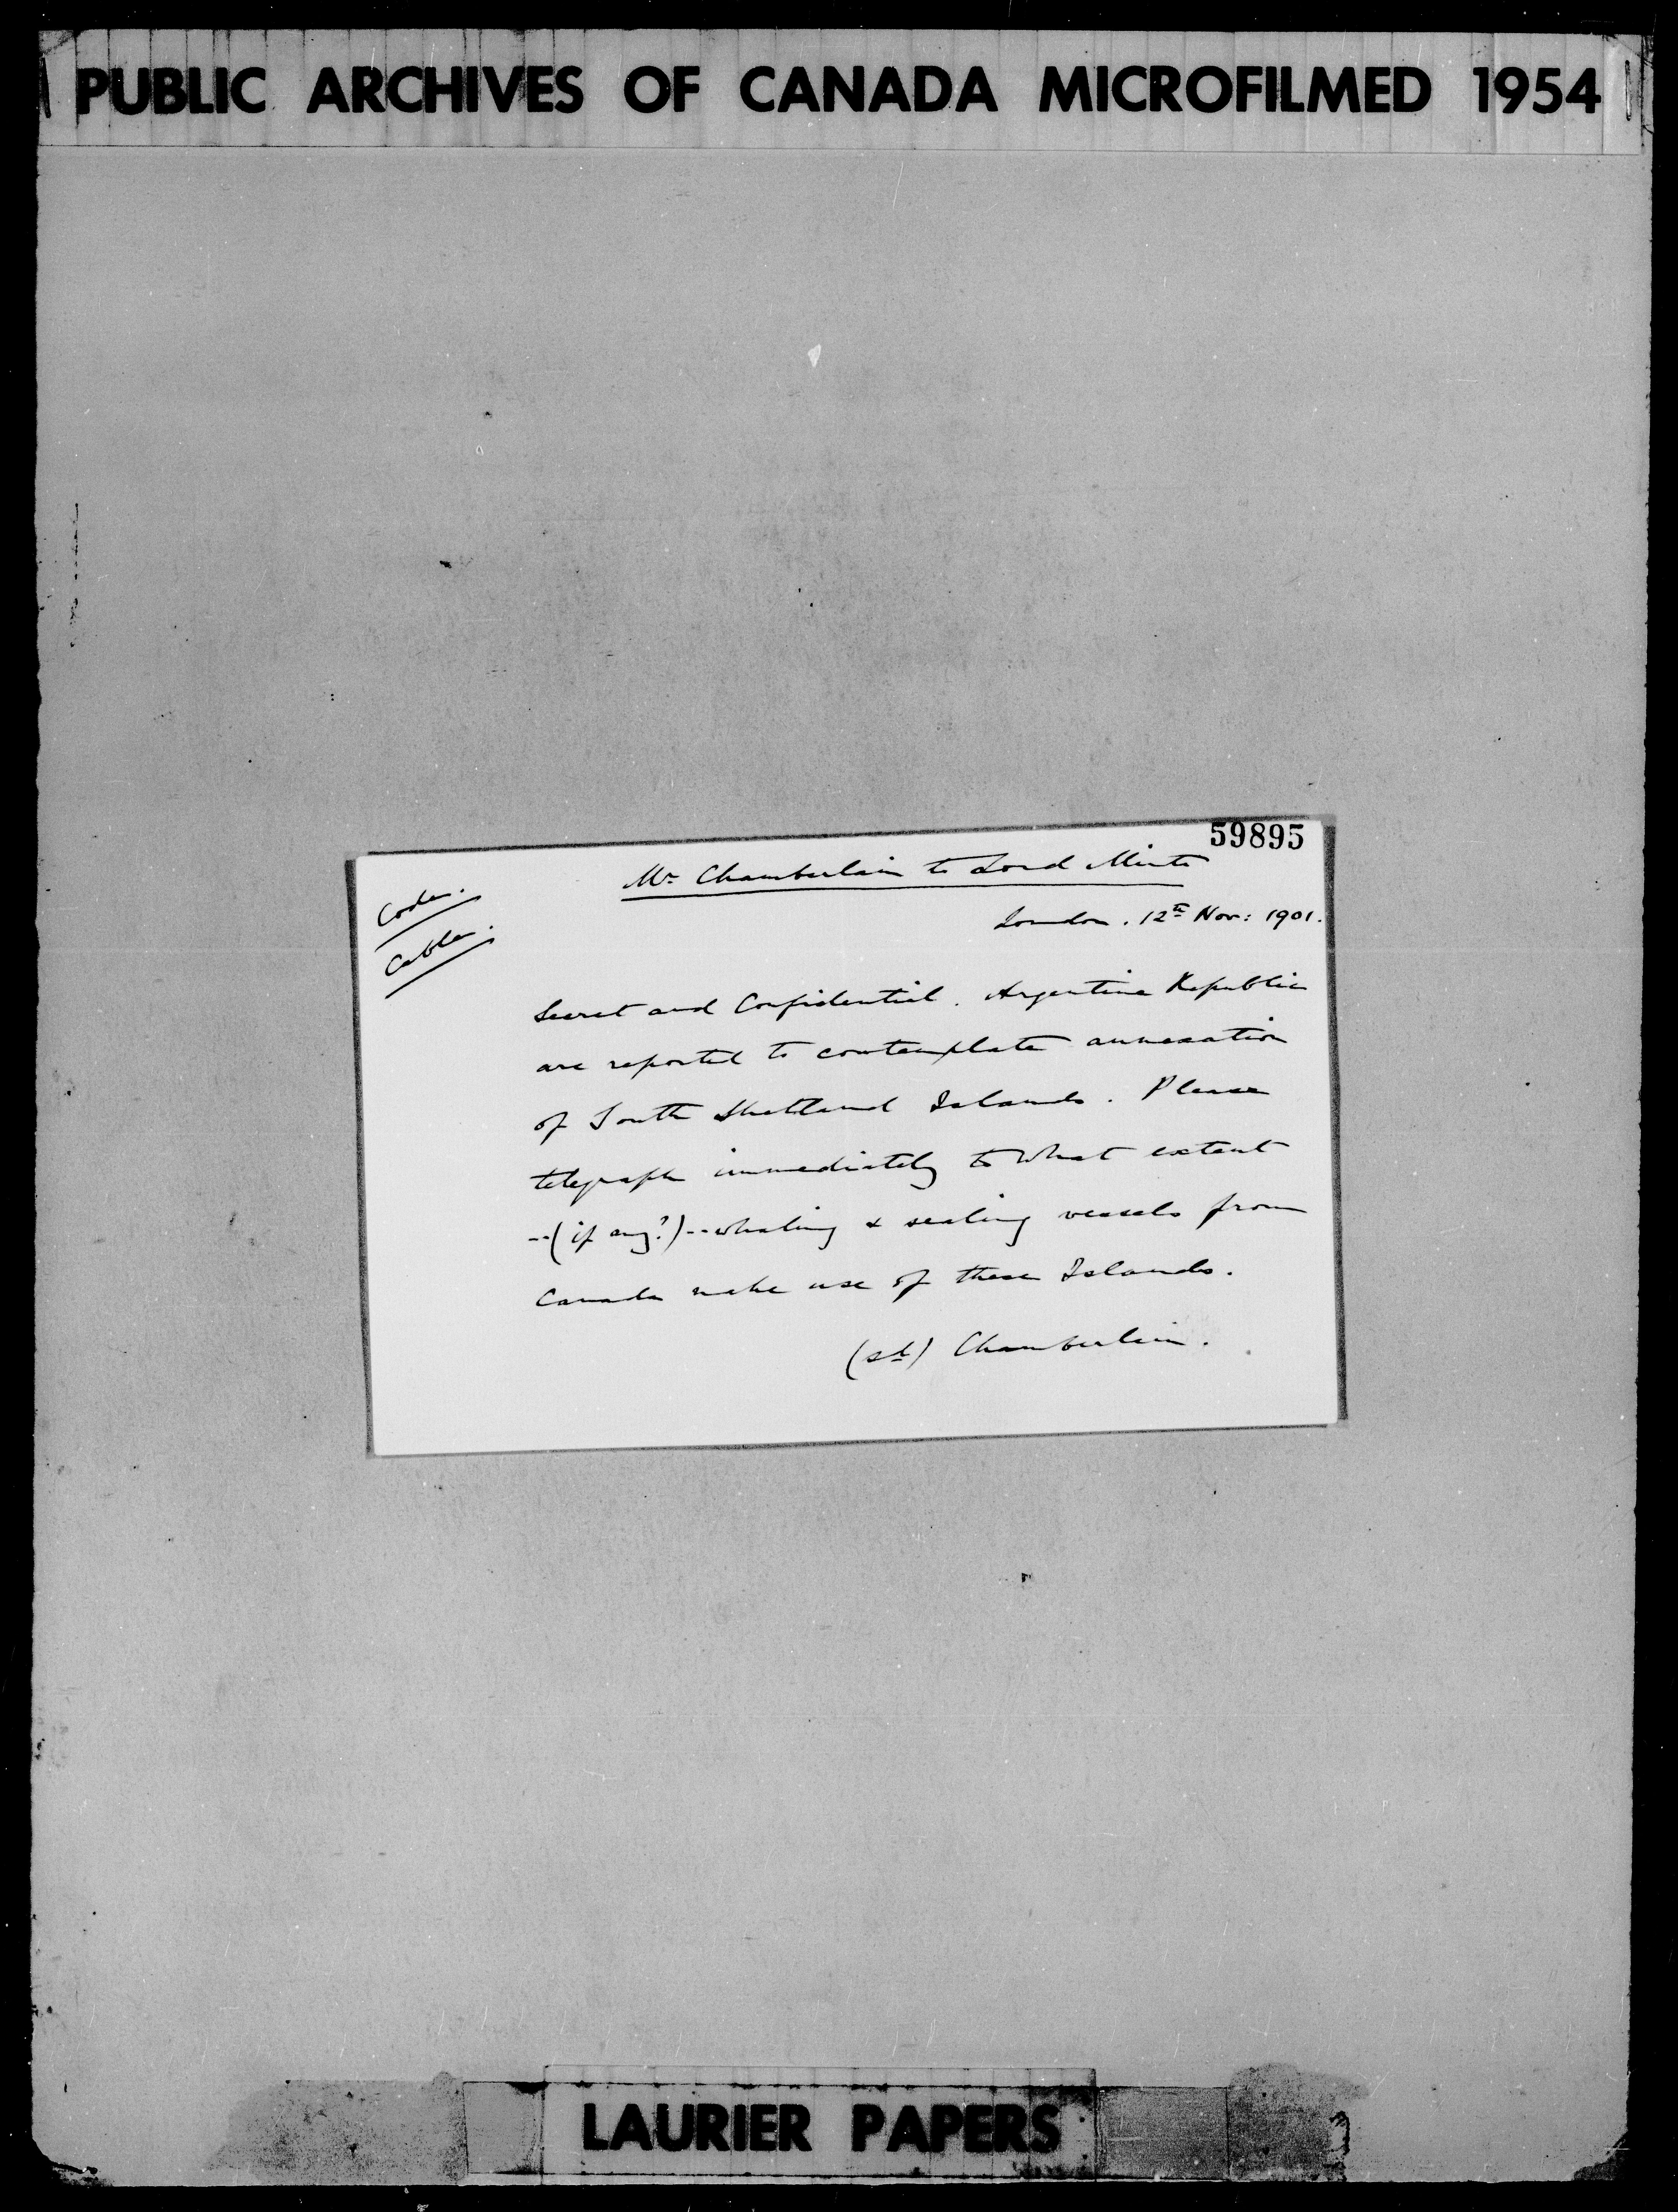 PUBLIC ARCHIVES OF CANADA MICROFILMED 1954
59895
Mr Chamberlain to Lord Minto
Code.
Cable.
London. 12th Nov: 1901.
Secret and Confidential. Argentine Republic
are reported to contemplate annexation
of South Shetland Islands. Please
telegraph immediately to what extent
--(if any?)--whaling & sealing vessels from
Canada make use of these Islands.
(sd) Chamberlain.
LAURIER PAPERS